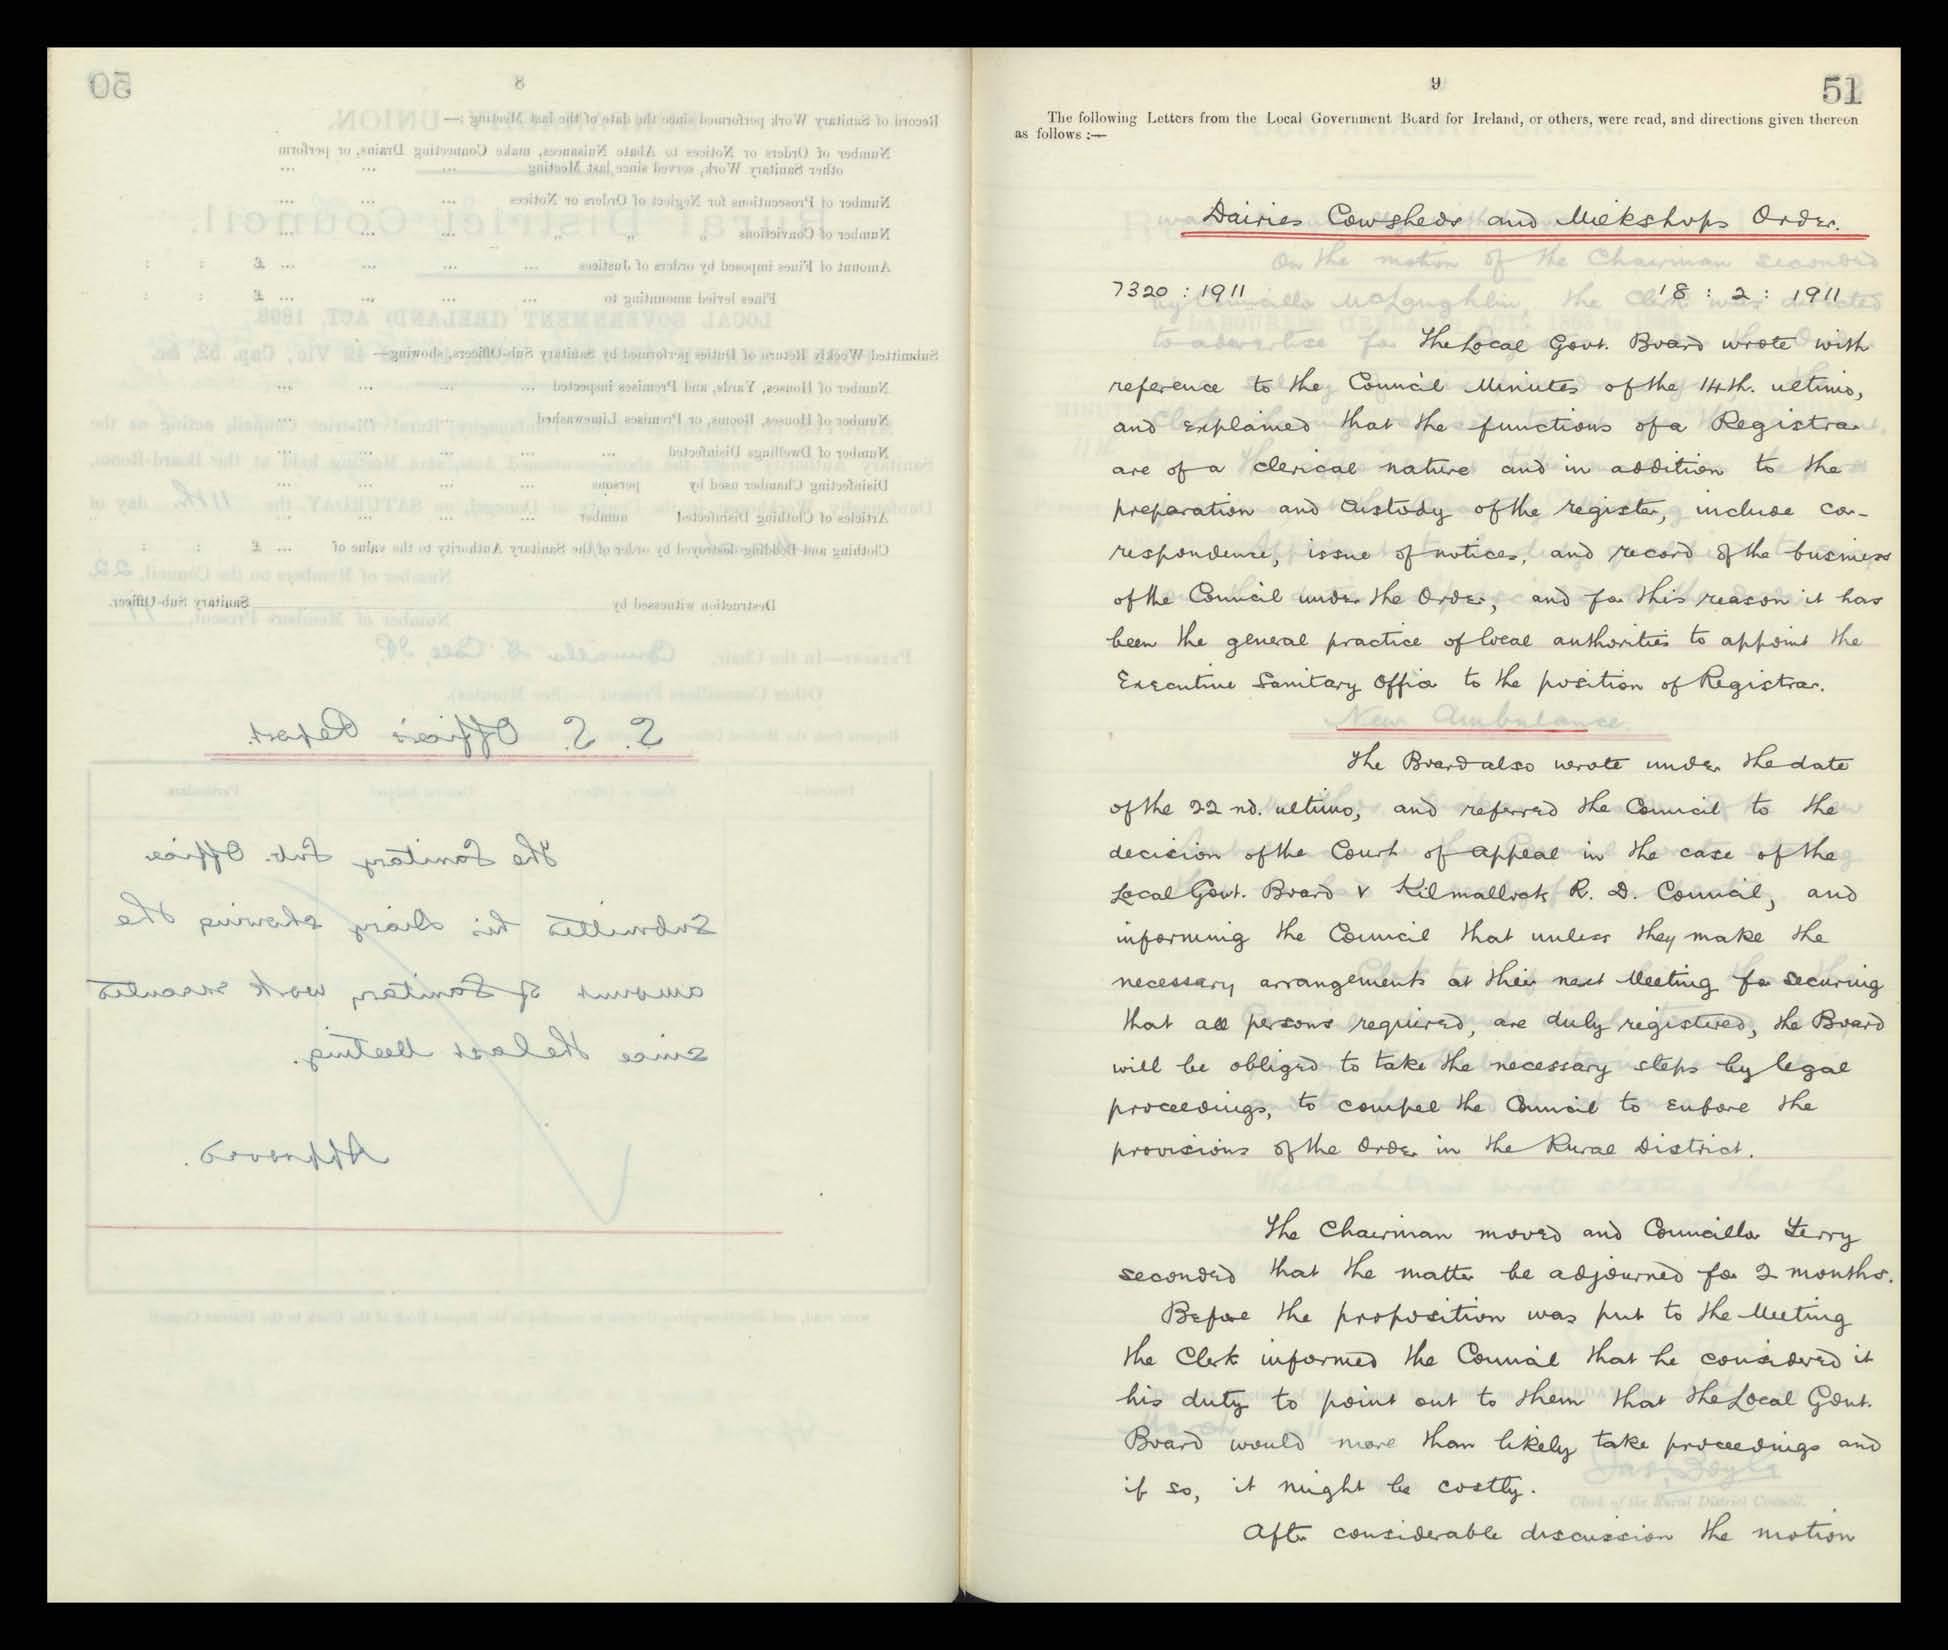 50
8
Record of Sanitary Work performed since the date of the last Meeting :—
Number of Orders or Notices to Abate Nuisances, make Connecting Drains, or perform
other Sanitary Work, served since last Meeting
Number of Prosecutions for Neglect of Orders or Notices
Number of Convictions " " "
Amount of Fines imposed by orders of Justices ... £ : :
Fines levied amounting to ... £ : :
Submitted Weekly Return of Duties performed by Sanitary Sub-Officers, showing—
Number of Houses, Yards, and Premises inspected
Number of Houses, Rooms, or Premises Limewashed
Number of Dwellings Disinfected
Disinfecting Chamber used by persons
Articles of Clothing Disinfected number
Clothing and Bedding destroyed by order of the Sanitary Authority to the value of ... £ : :
Destruction witnessed by Sanitary Sub-Officer.
S. S. Officer's Report.
The Sanitary Sub. Officer
Submitted his Diary showing the
amount of Sanitary work executed
since the last Meeting.
Approved.
9
51
The following Letters from the Local Government Board for Ireland, or others, were read, and directions given thereon
as follows :—
Dairies Cowsheds and Milkshops Order.
7320 : 1911 18 : 2 : 1911
The Local Govt. Board wrote with
reference to the Council Minutes of the 14th. ultimo,
and explained that the functions of a Registrar
are of a clerical nature and in addition to the
preparation and custody of the register, include cor-
respondence, issue of notices, and record of the business
of the Council under the Order, and for this reason it has
been the general practice of local authorities to appoint the
Executive Sanitary Officer to the position of Registrar.
The Board also wrote under the date
of the 22nd. ultimo, and referred the Council to the
decision of the Court of Appeal in the case of the
Local Govt. Board v Kilmallock R. D. Council, and
informing the Council that unless they make the
necessary arrangements at their next Meeting for securing
that all persons required, are duly registered, the Board
will be obliged to take the necessary steps by legal
proceedings, to compel the Council to enforce the
provisions of the Order in the Rural District.
The Chairman moved and Councillor Terry
seconded that the matter be adjourned for 2 months.
Before the proposition was put to the Meeting
the Clerk informed the Council that he considered it
his duty to point out to them that the Local Govt.
Board would more than likely take proceedings and
if so, it might be costly.
After considerable discussion the motion